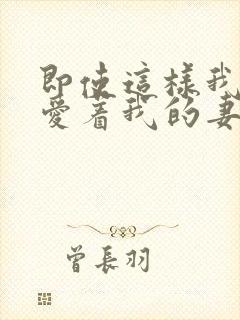 即使這樣我
愛着我的妻
曾長羽